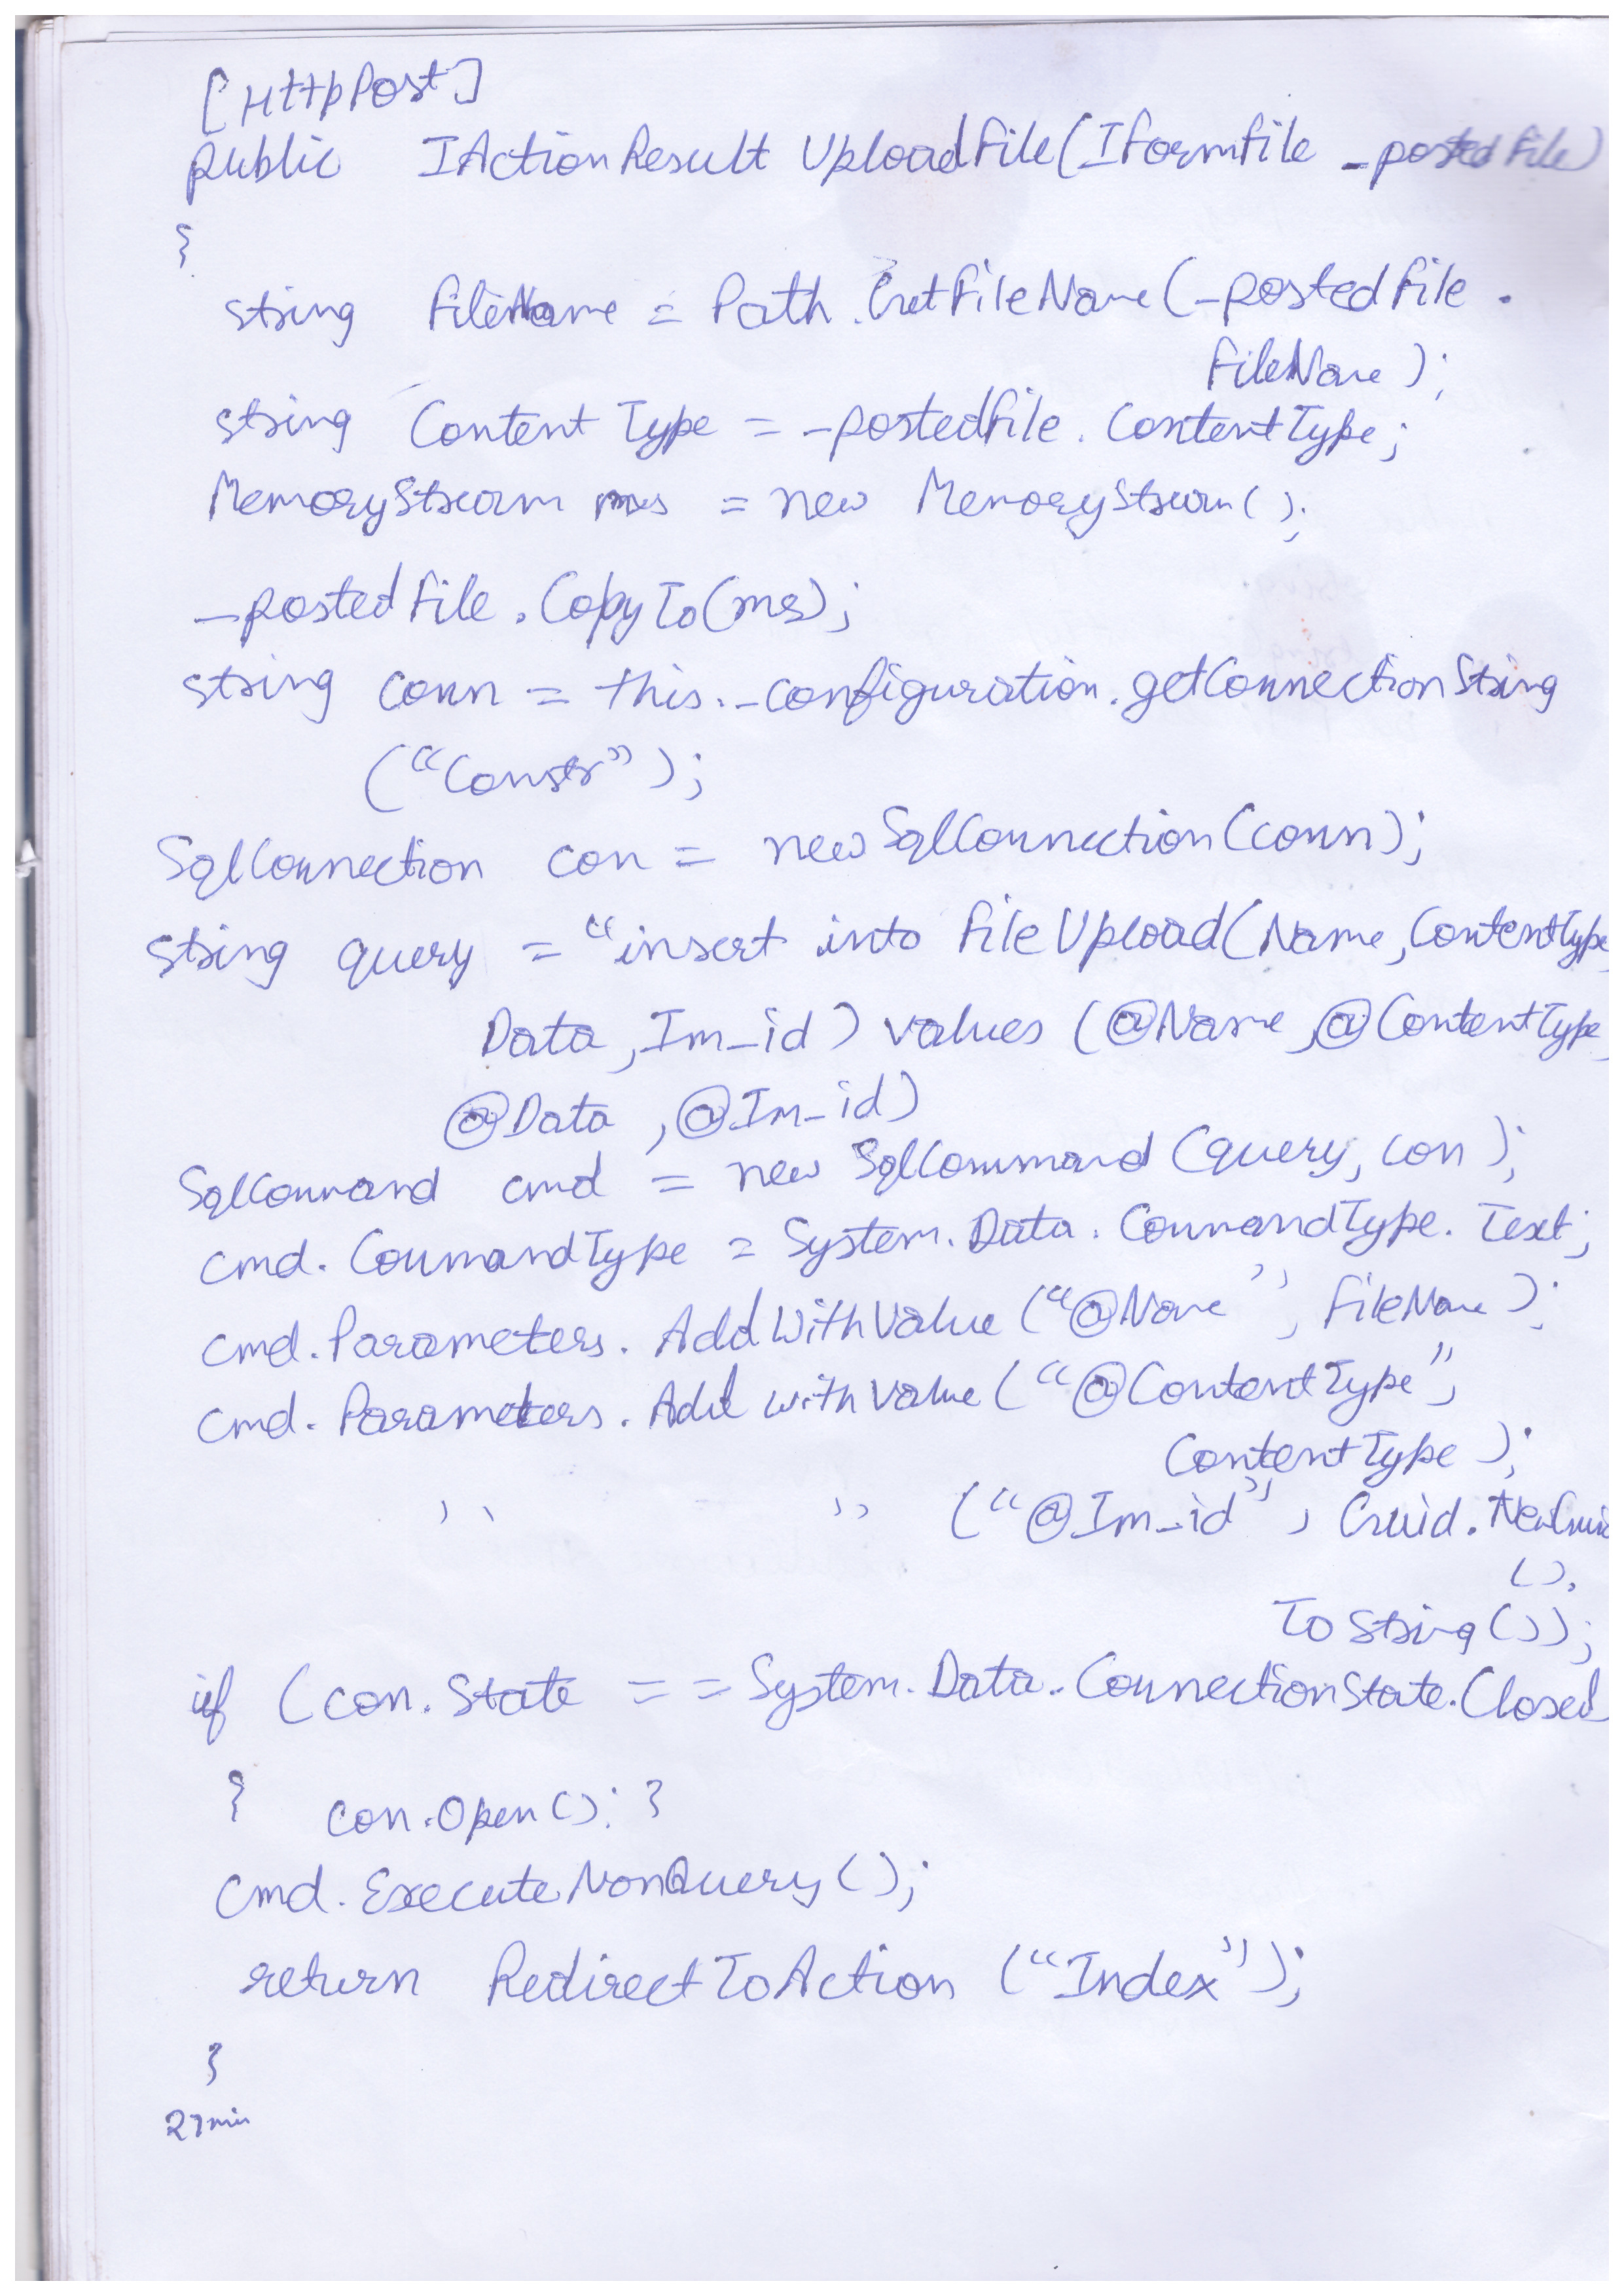 [HttpPost]
public IActionResult UploadFile(IFormFile _postedFile)
{
string FileName = Path.GetFileName(_postedFile.
FileName);
string ContentType = _postedFile.ContentType;
MemoryStream ms = new MemoryStream();
_postedFile.CopyTo(ms);
string conn = this._configuration.getConnectionString
("Constr");
SqlConnection con = new SqlConnection(conn);
string query = "insert into FileUpload(Name,ContentType,
Data,Im_id) values (@Name,@ContentType,
@Data,@Im_id)
SqlCommand cmd = new SqlCommand (query, con);
cmd.CommandType = System.Data.CommandType.Text;
cmd.Parameters.AddWithValue("@Name", FileName);
cmd.Parameters.AddWithValue("@ContentType",
ContentType);
" " ("@Im_id", Guid.NewGuid
().
ToString());
if (con.State == System.Data.ConnectionState.Closed
{ con.Open(); }
cmd.ExecuteNonQuery();
return RedirectToAction ("Index");
}
27min